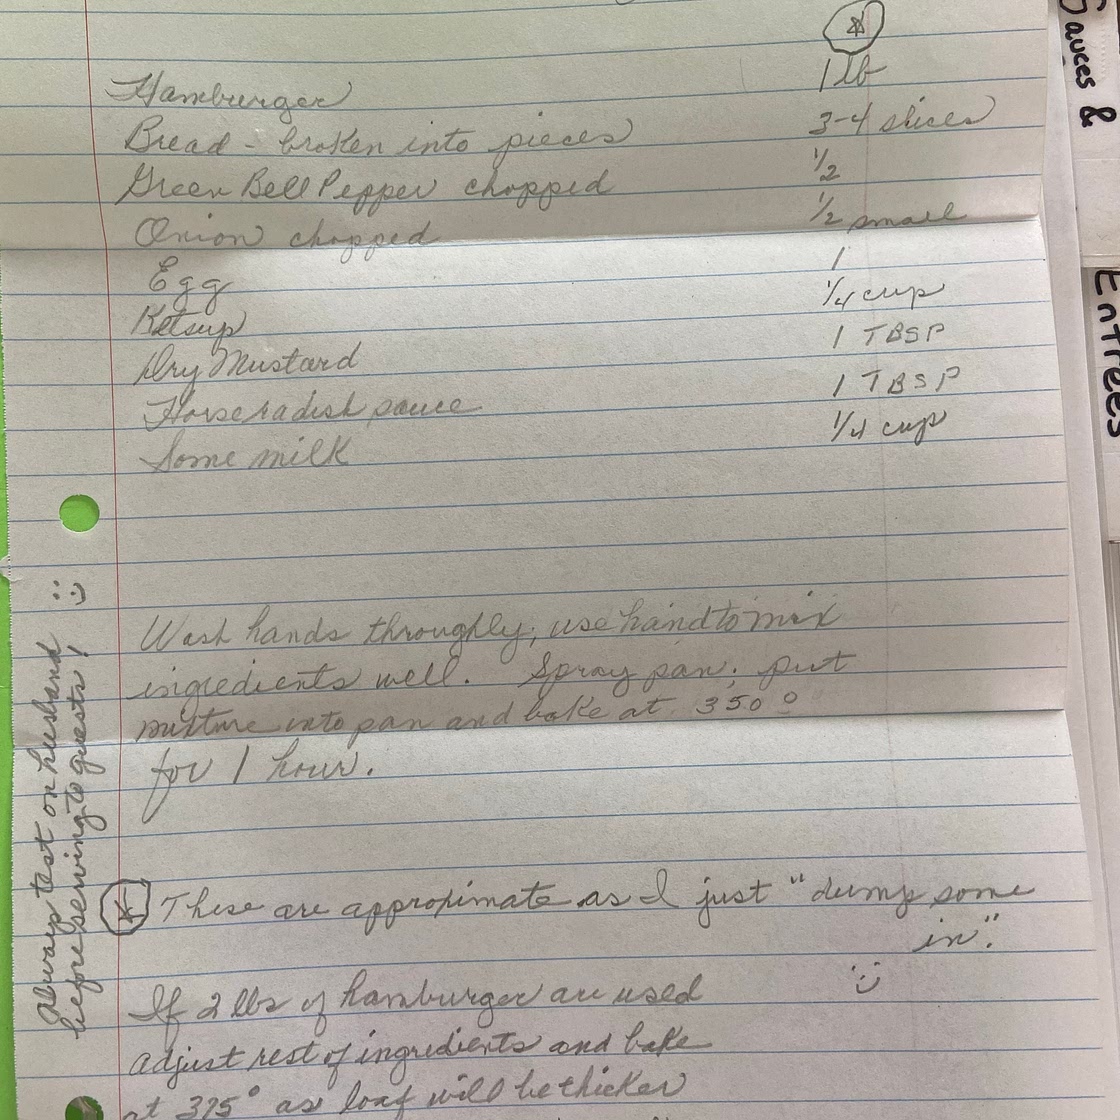 Hamburger 1 lb
Bread - broken into pieces 3-4 slices
Green Bell Pepper chopped 1/2
Onion chopped 1/2 small
Egg 1
Ketsup 1/4 cup
Dry Mustard 1 TBSP
Horseradish sauce 1 TBSP
Some milk 1/4 cup
Wash hands throughly; use hand to mix
ingredients well. Spray pan; put
mixture into pan and bake at 350°
for 1 hour.
These are approximate as I just "dump some
in".
If 2 lbs of hamburger are used
adjust rest of ingredients and bake
at 375° as loaf will be thicker
Always test on husband
before serving to guests!
Sauces &
Entrees